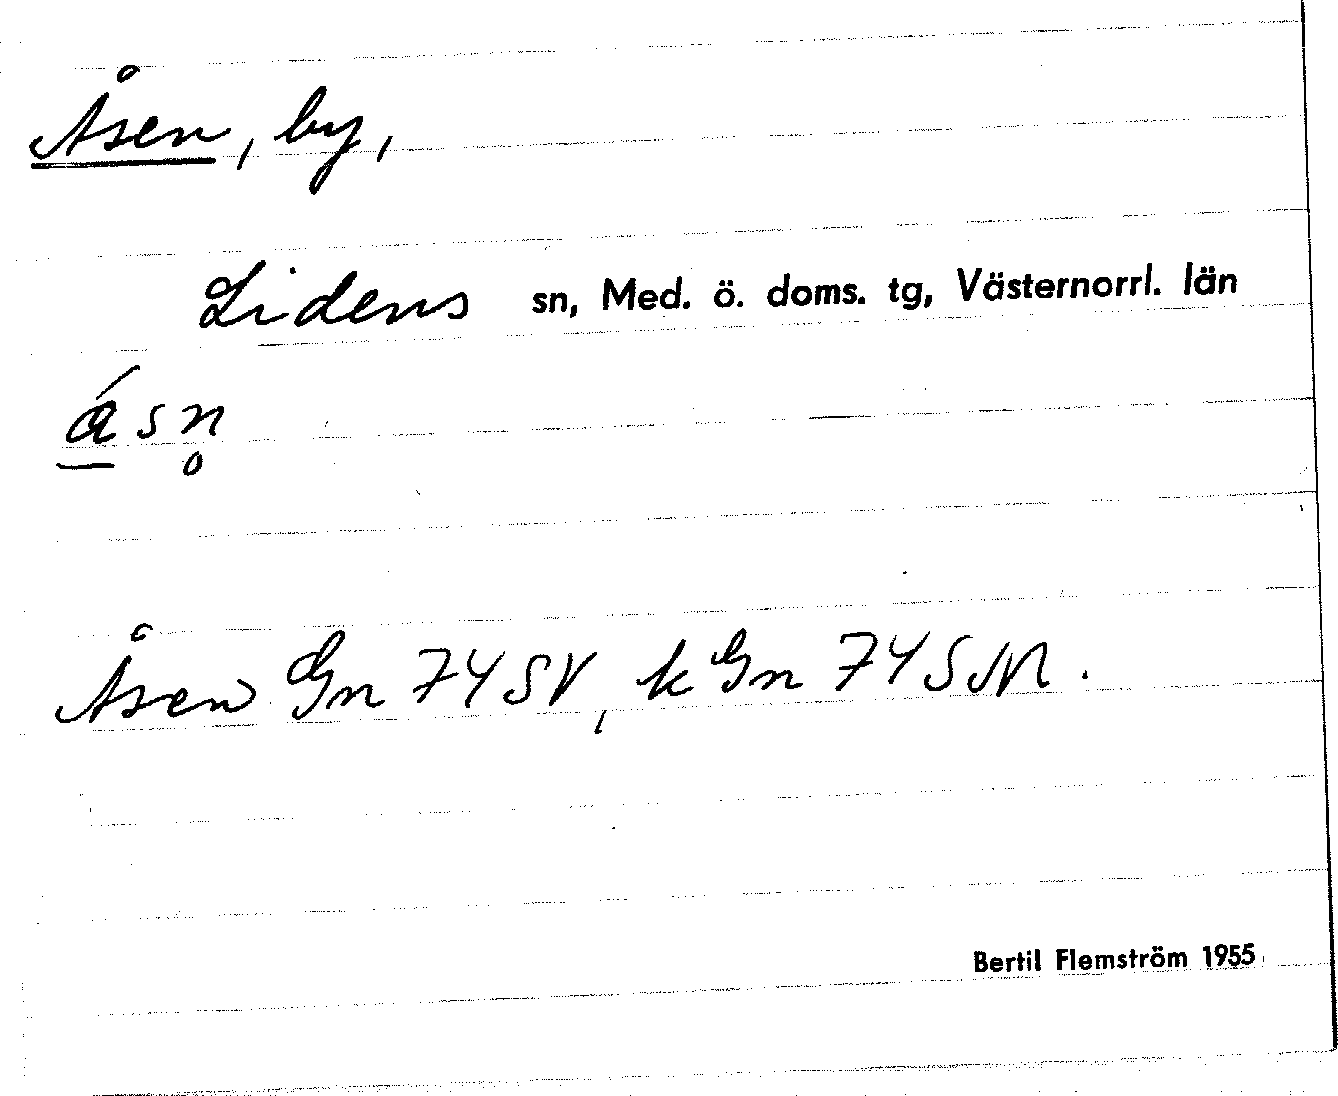 Åsen, by,
Lidens sn, Med. ö. doms. tg, Västernorrl. län
á̱sn̥
Åsen Gn 74SV, kGn 74SM.
Bertil Flemström 1955